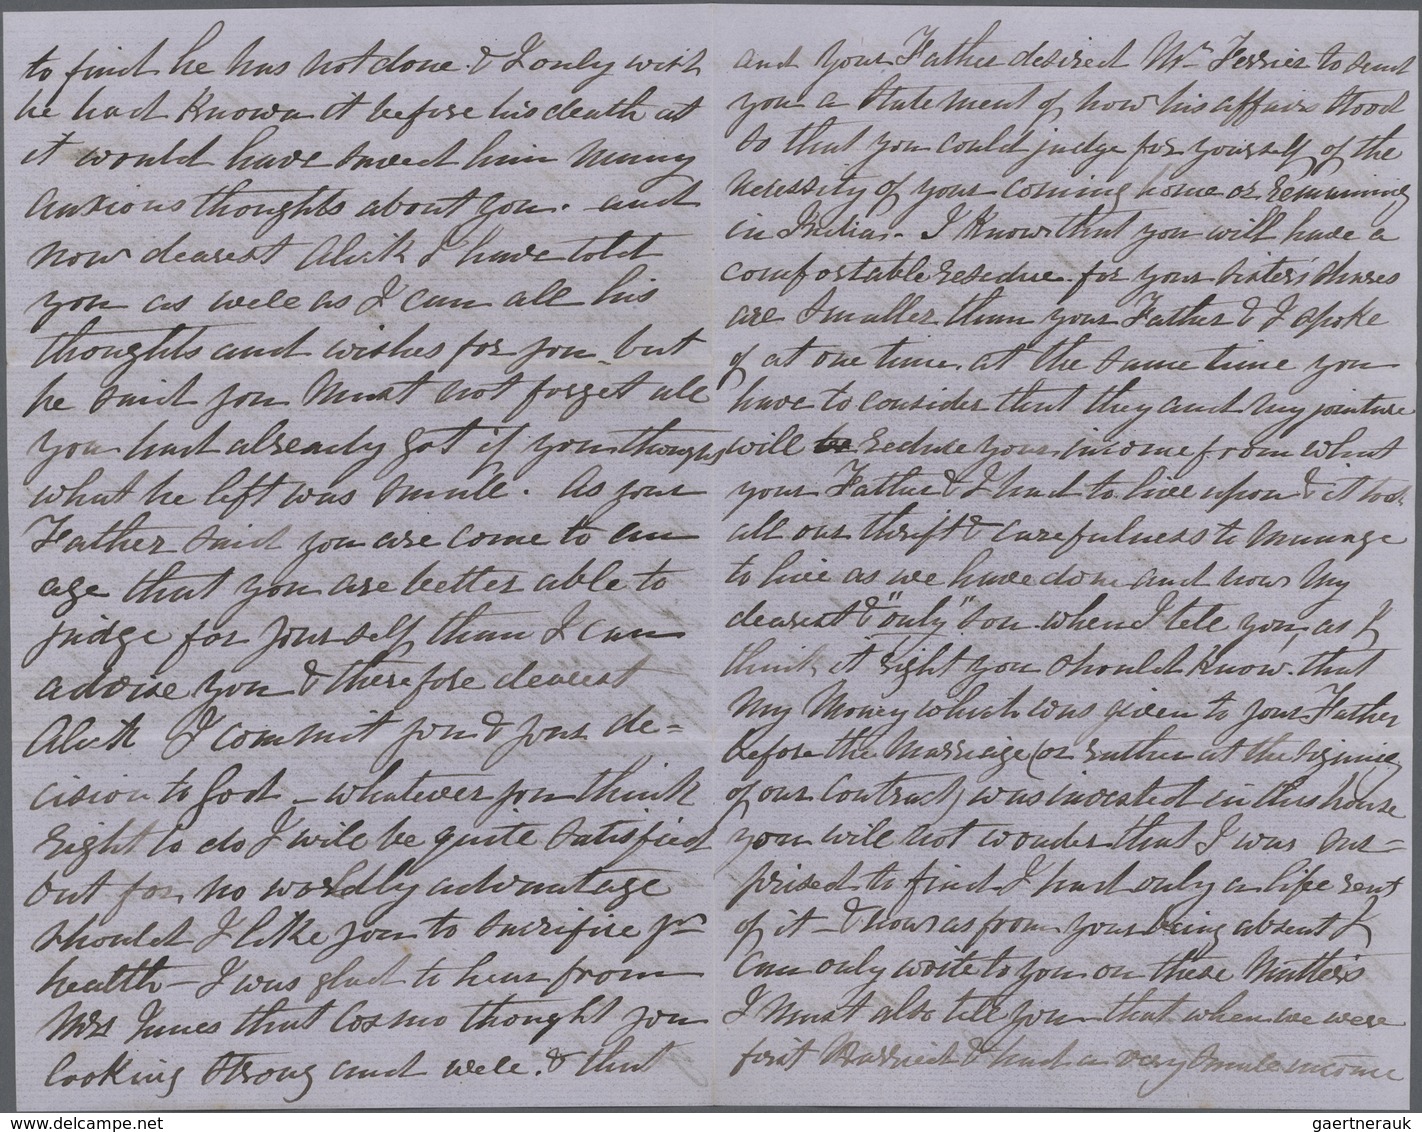 to find he has not done. & I only wish
he had Known it before his death as
it would have saved him many
anxious thoughts about you. and
now dearest Alick I have told
you as well as I can all his
thoughts and wishes for you but
he said you Must not forget all
you had already got if you thought
what he left was small. As your
Father said you are come to an
age that you are better able to
judge for yourself than I can
advise you & therefore dearest
Alick I commit you & your de=
cision to God – whatever you think
right to do I will be quite satisfied
but for no worldly advantage
should I like you to sacrifice yr
health – I was glad to hear from
Mrs Innes that Cosmo thought you
looking strong and well. & that
and your Father desired Mr Ferrier to send
you a statement of how his affairs stood
so that you could judge for yourself of the
necessity of your coming home or remaining
in India. – I Know that you will have a
comfortable residue for your sisters shares
are smaller than your Father & I spoke
of at one time. at the same time you
have to consider that they and my jointure
will reduce your income from what
your Father & I had to live upon & it took
all our thrift & carefulness to manage
to live as we have done and now My
dearest & "only" son when I tell you, as I
think it right you should Know. that
My Money which was given to your Father
before the Marriage (or rather at the signing
of our Contract) was invested in this house
you will not wonder that I was sur=
prised to find I had only a life rent
of it – & now as from your being absent I
can only write to you on these Matters
I Must also tell you that when we were
first Married & had a very small income
gaertnerauk